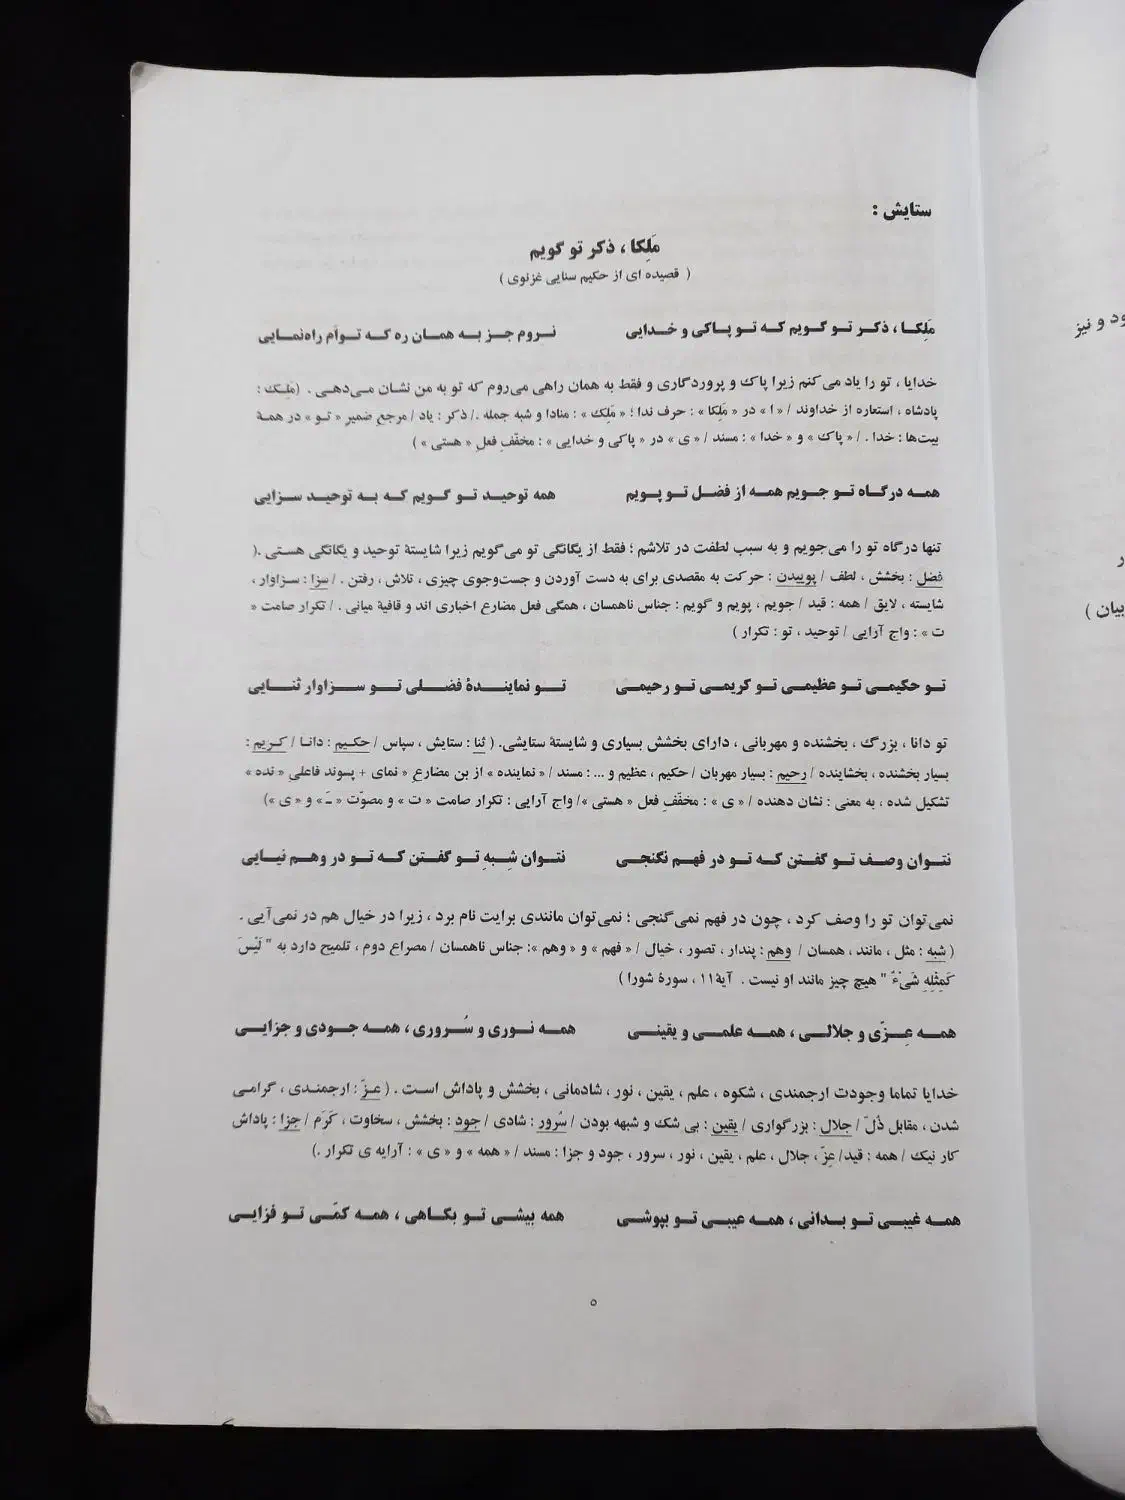 ستایش :
مَلِکا ، ذکر تو گویم
( قصیده ای از حکیم سنایی غزنوی )
مَلِکـا ، ذکر تـو گـویم کـه تـو پـاکی و خـدایی نـروم جـز بـه همـان ره کـه تـواَم راه‌نمـایی
خدایا ، تو را یاد می‌کنم زیرا پاک و پروردگاری و فقط به همان راهی می‌روم که تو به من نشان می‌دهی . (مَلِک :
پادشاه ، استعاره از خداوند / « ا » در « مَلِکا » : حرف ندا ؛ « مَلِک » : منادا و شبه جمله ./ ذکر : یاد / مرجع ضمیرِ « تـو » در همـۀ
بیت‌ها : خدا . / « پاک » و « خدا » : مسند / « ی » در « پاکی و خدایی » : مخفّفِ فعل « هستی » )
همـه درگـاه تـو جـویم همـه از فضـل تـو پـویم همه توحیـد تـو گـویم کـه بـه توحیـد سـزایی
تنها درگاه تو را می‌جویم و به سبب لطفت در تلاشم ؛ فقط از یگانگی تو می‌گویم زیرا شایستۀ توحید و یگانگی هستی .(
فضل : بخشش ، لطف / پوییدن : حرکت به مقصدی برای به دست آوردن و جست‌وجوی چیزی ، تلاش ، رفتن . / سزا : سـزاوار ،
شایسته ، لایق / همه : قید / جویم ، پویم و گویم : جناس ناهمسان ، همگی فعل مضارع اخباری اند و قافیۀ میانی . / تکرار صامت «
ت » : واج آرایی / توحید ، تو : تکرار )
تـو حکیمـی تـو عظیمـی تـو کریمـی تـو رحیمـی تـو نماینـدۀ فضـلی تـو سـزاوار ثنـایی
تو دانا ، بزرگ ، بخشنده و مهربانی ، دارای بخشش بسیاری و شایستۀ ستایشی. ( ثنا : ستایش ، سپاس / حکـیم : دانـا / کـریم :
بسیار بخشنده ، بخشاینده / رحیم : بسیار مهربان / حکیم ، عظیم و ... : مسند / « نماینده » از بن مضارعِ « نمای + پسوند فاعلی « نده »
تشکیل شده ، به معنی : نشان دهنده / « ی » : مخفّفِ فعل « هستی »/ واج آرایی : تکرار صامت « ت » و مصوّت « ـَ » و « ی »)
نتـوان وصـف تـو گفـتن کـه تـو در فهـم نگنجـی نتـوان شِـبهِ تـو گفـتن کـه تـو در وهـم نیـایی
نمی‌توان تو را وصف کرد ، چون در فهم نمی‌گنجی ؛ نمی‌توان مانندی برایت نام برد ، زیرا در خیال هم در نمی‌آیی .
( شبه : مثل ، مانند ، همسان / وهم : پندار ، تصور ، خیال / « فهم » و « وهم »: جناس ناهمسان / مصراع دوم ، تلمیح دارد به " لَیْسَ
کَمِثْلِهِ شَیْءٌ " هیچ چیز مانند او نیست . آیۀ۱۱ ، سورۀ شورا )
همـه عِـزّی و جلالـی ، همـه علمـی و یقینـی همـه نـوری و سُـروری ، همـه جـودی و جزایـی
خدایا تماما وجودت ارجمندی ، شکوه ، علم ، یقین ، نور ، شادمانی ، بخشش و پاداش اسـت . ( عـزّ : ارجمنـدی ، گرامـی
شدن ، مقابل ذُلّ / جلال : بزرگواری / یقین : بی شک و شبهه بودن / سُرور : شادی / جود : بخشش ، سخاوت ، کَرَم / جزا : پاداش
کار نیک / همه : قید/ عِزّ ، جلال ، علم ، یقین ، نور ، سرور ، جود و جزا : مسند / « همه » و « ی » : آرایه ی تکرار .)
همـه غیبـی تـو بـدانی ، همـه عیبـی تـو بپوشـی همه بیشـی تـو بکـاهی ، همـه کمّـی تـو فزایـی
۵
ود و نیز
ر
بیان )